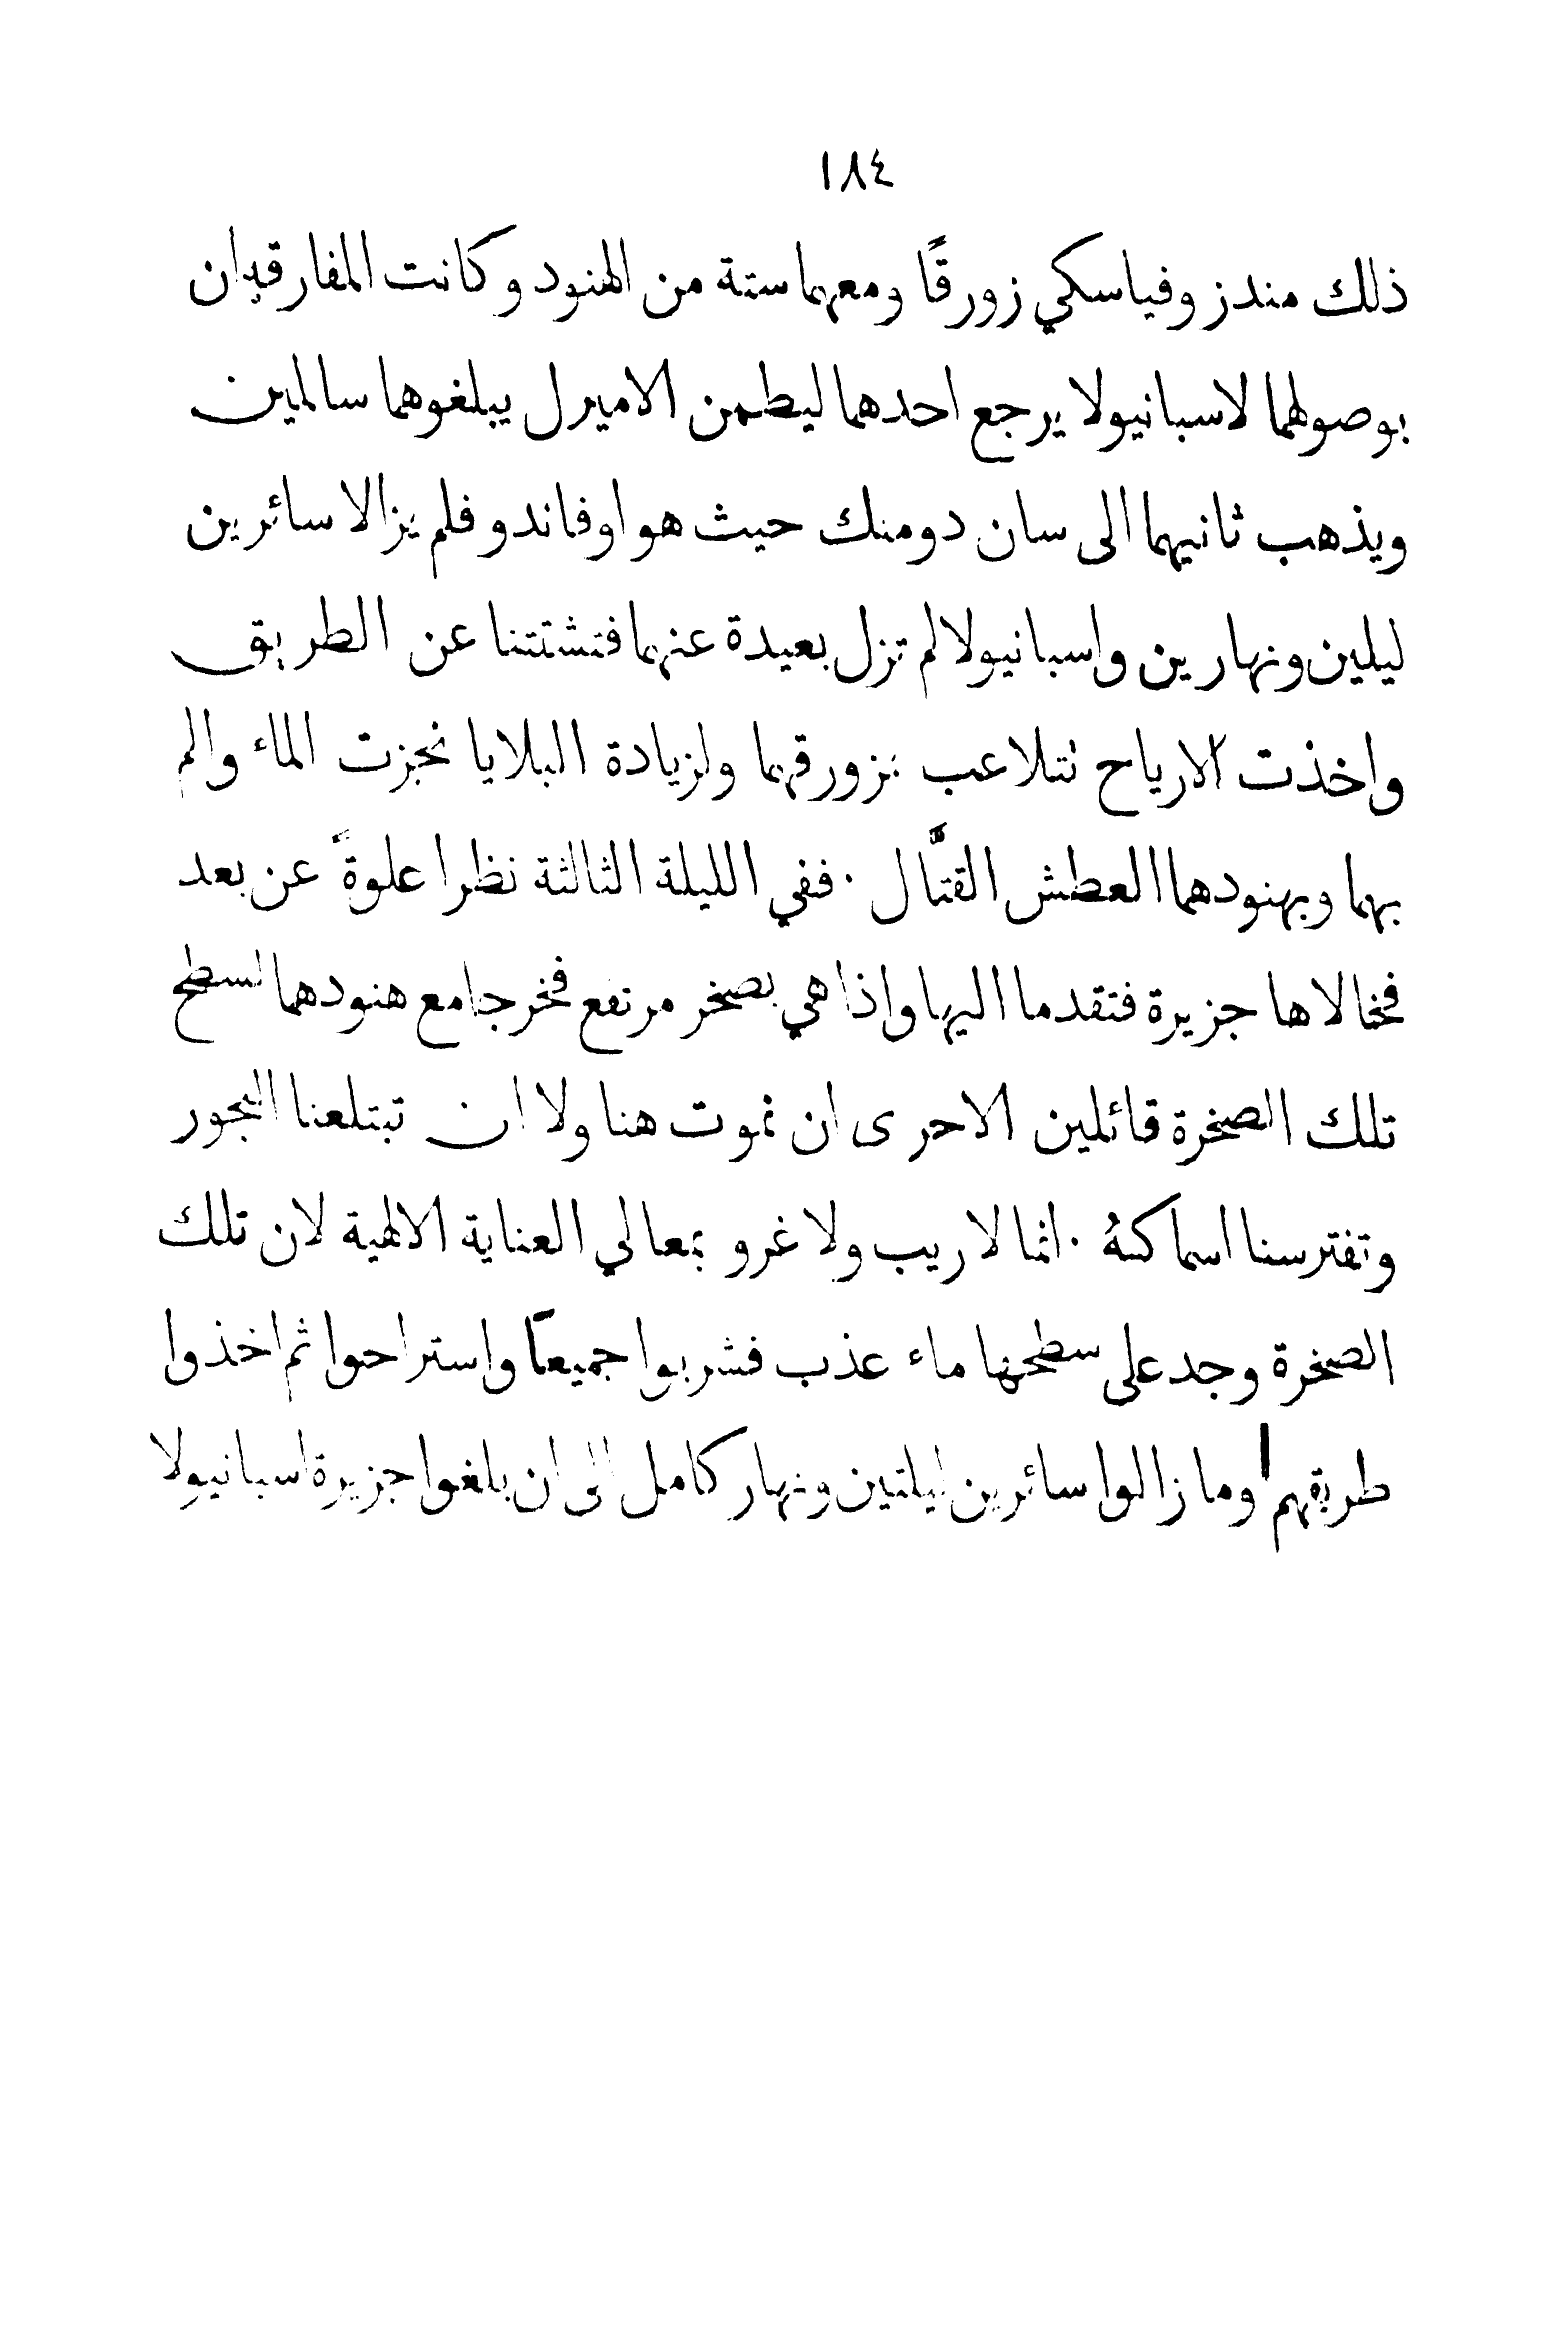 ١٨٤
ذلك مندز وفياسكي زورقًا ومعهما ستة من الهنود وكانت المفارقة ان
بوصولهما لاسبانيولا يرجع احدهما ليطمن الاميرل يبلغوهما سالمين
ويذهب ثانيهما الى سان دومنك حيث هو اوفاندو فلم يزالا سائرين
ليلين ونهارين واسبانيولا لم تزل بعيدة عنهما فتشتتنا عن الطريق
واخذت الارياح تتلاعب بزورقهما ولزيادة البلايا نجزت الماء والم
بهما وبهنودهما العطش القتَّال . ففي الليلة الثالثة نظرا علوةً عن بعد
فخالاها جزيرة فتقدما اليها واذا هي بصخر مرتفع فخرجا مع هنودهما لسطح
تلك الصخرة قائلين الاحرى ان نموت هنا ولا ان تبتلعنا البحور
وتفترسنا اسماكهُ . انما لا ريب ولا غرو بمعالي العناية الالهية لان تلك
الصخرة وجد على سطحها ماء عذب فشربوا جميعًا واستراحوا ثم اخذوا
طريقهم وما زالوا سائرين ليلتين ونهار كامل الى ان بلغوا جزيرة اسبانيولا